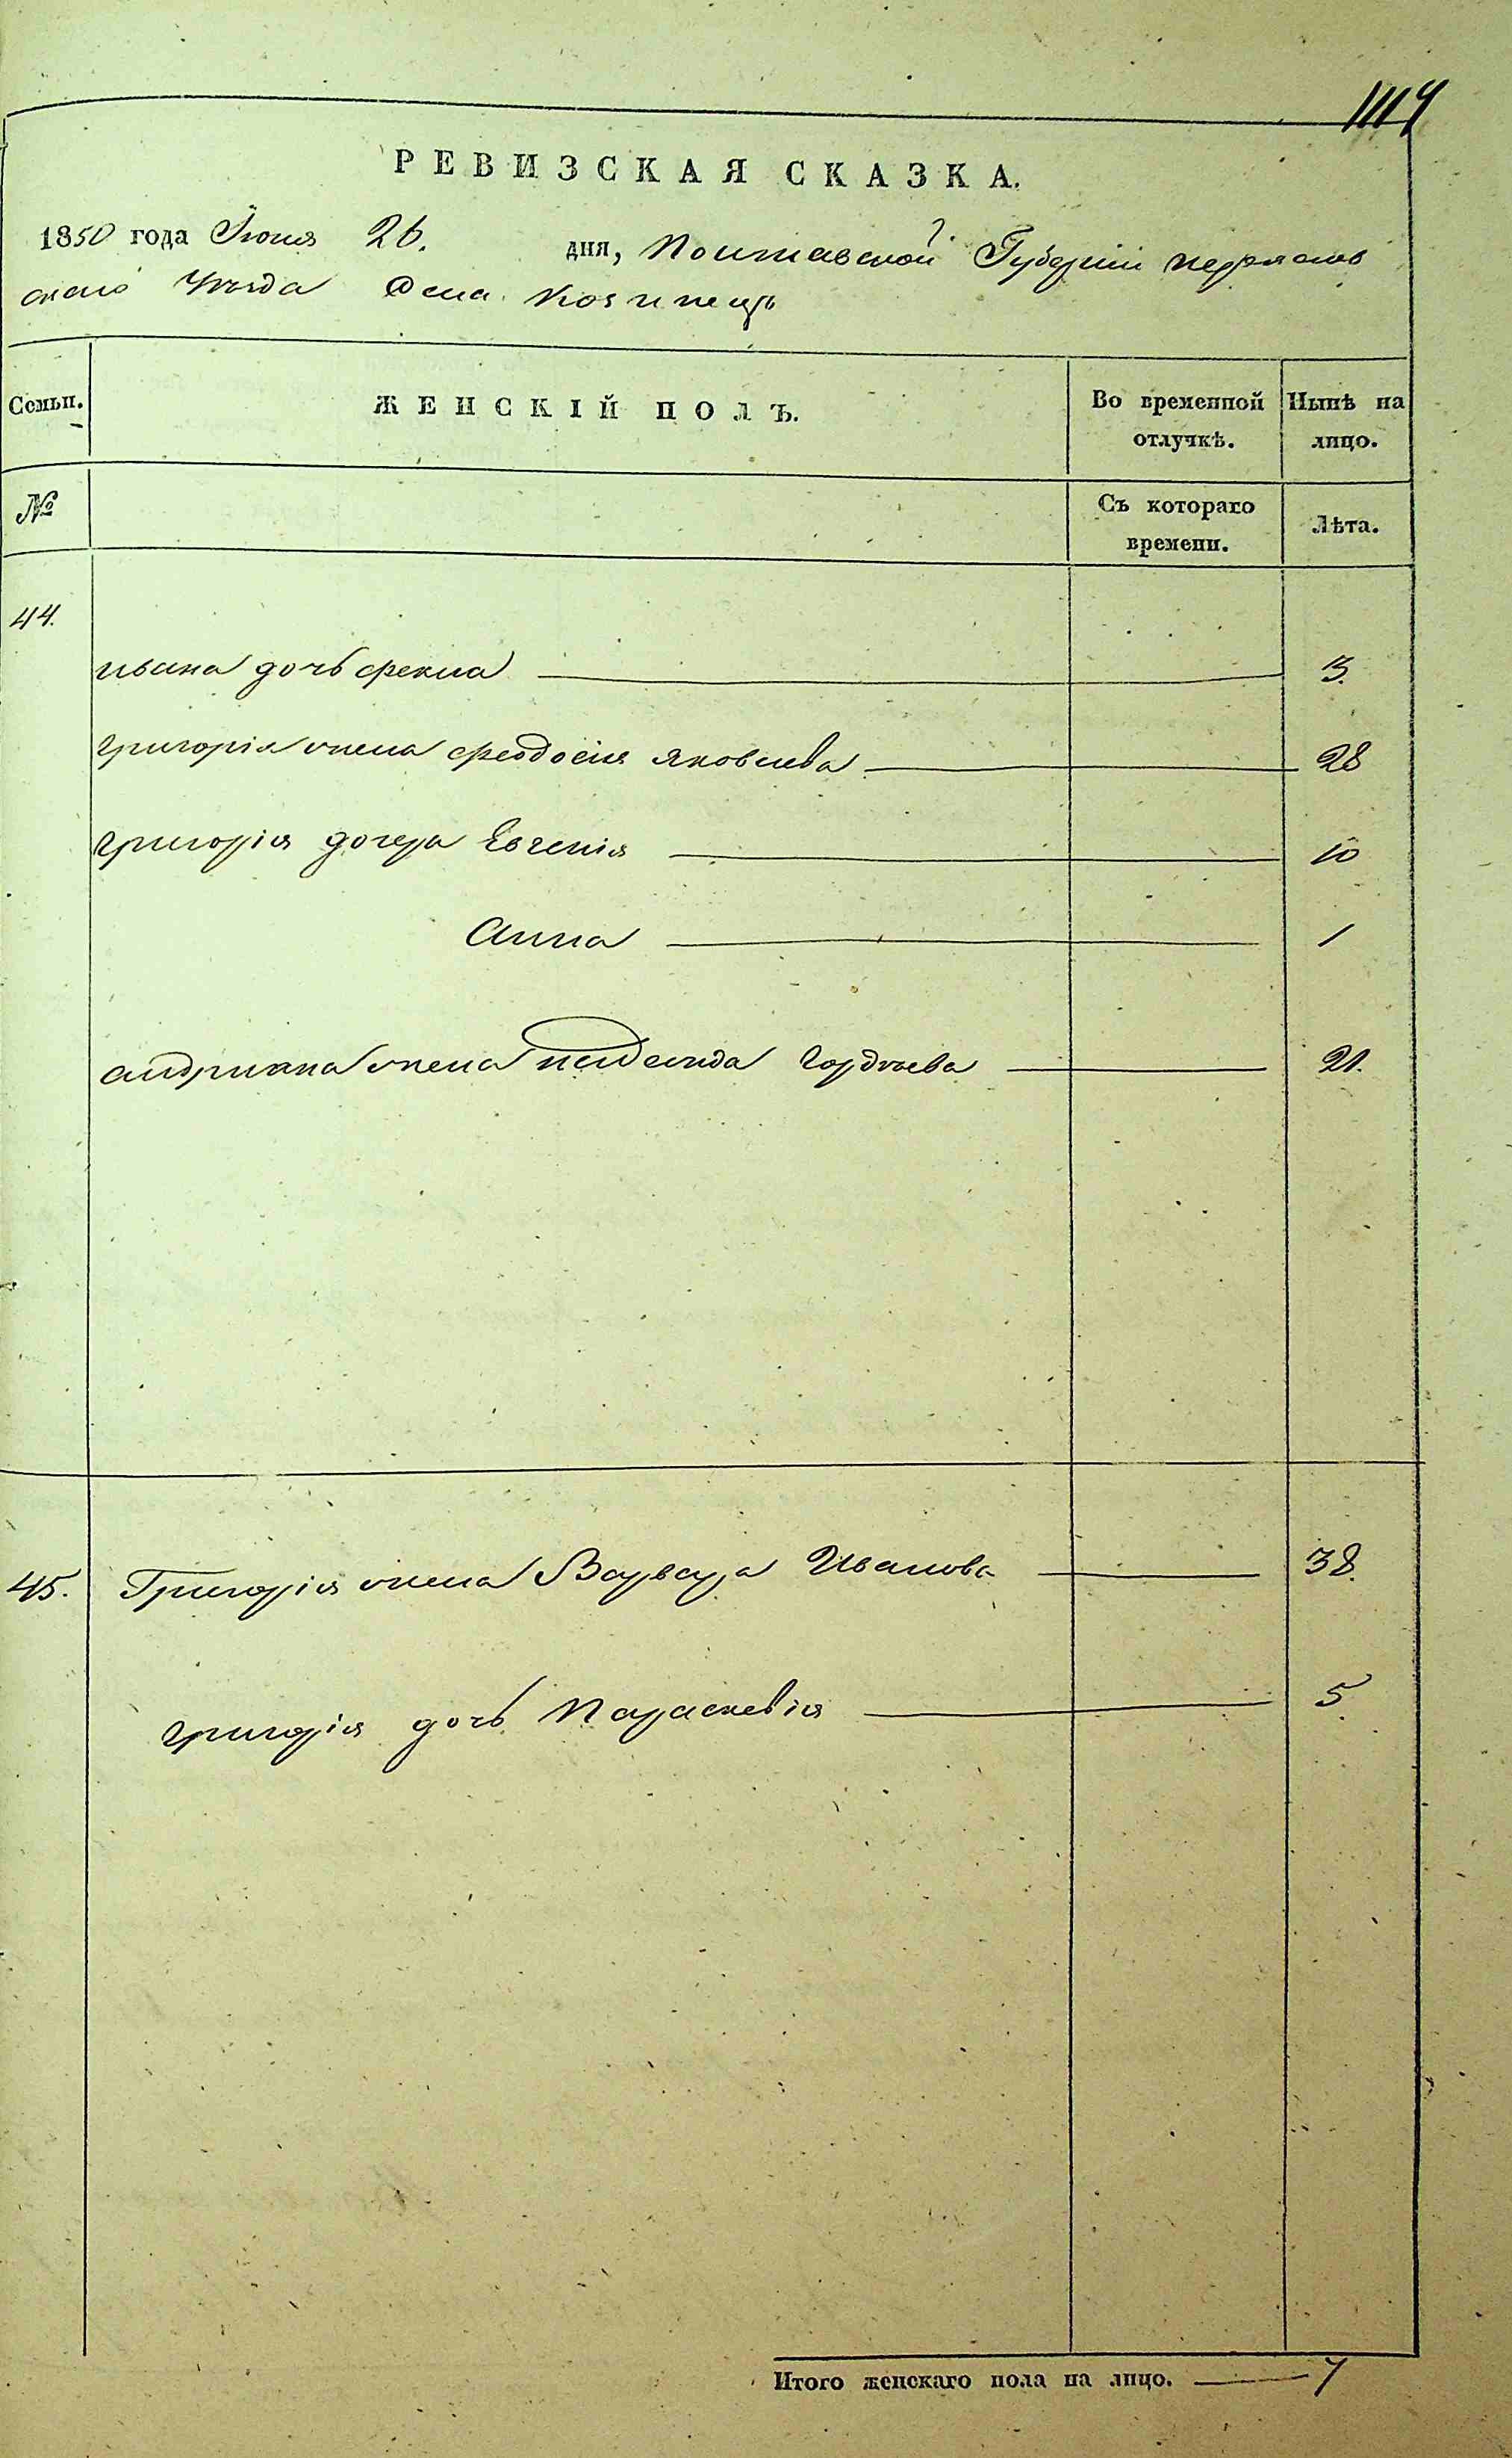 1114
РЕВИЗСКАЯ СКАЗКА.
1850 года Іюня 26. дня, Полтавской Губерніи переяслов
скаго Уѣзда Села Козинецъ
Семьи. ЖЕНСКІЙ ПОЛЪ. Во временной отлучкѣ. Нынѣ на лицо.
№ Съ котораго времени. Лѣта.
44.
ивана дочь фекла 3.
григорія жена феодосія яковлева 28
григорія дочера Евгенія 10
Анна 1
андріяна жена гордѣева 21.
45. Григорія жена Варвара Иванова 38.
григорія дочь Параскевія 5
Итого женскаго пола на лицо. 7